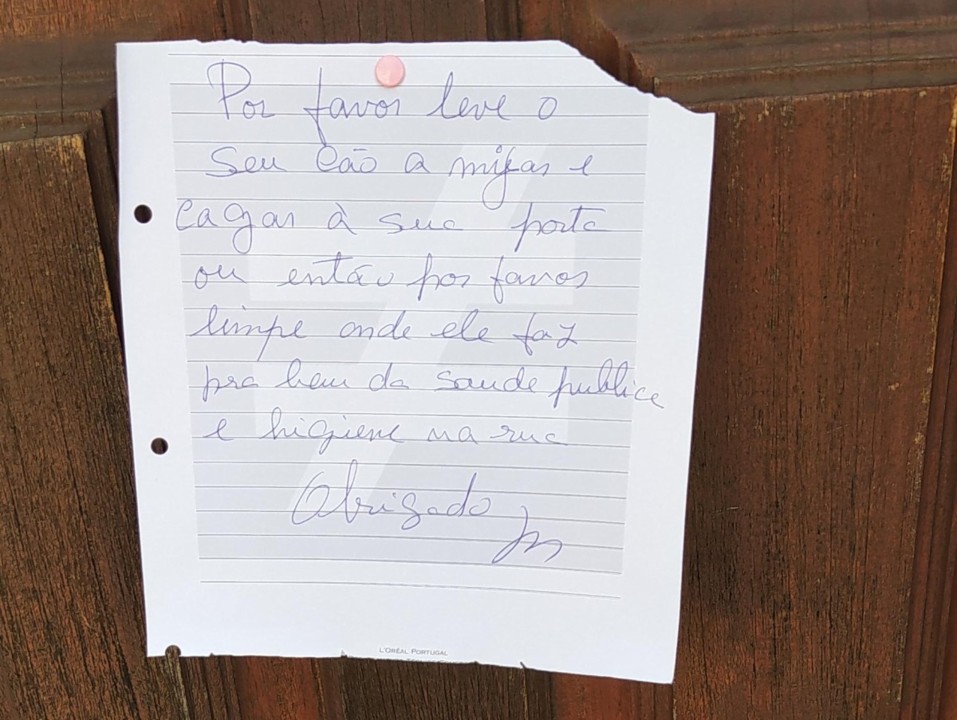 Por favor leve o
seu cão a mijar e
cagar à sua porta
ou então por favor
limpe onde ele faz
pra bem da saude publica
e higiene na rua
Obrigado
L'ORÉAL PORTUGAL